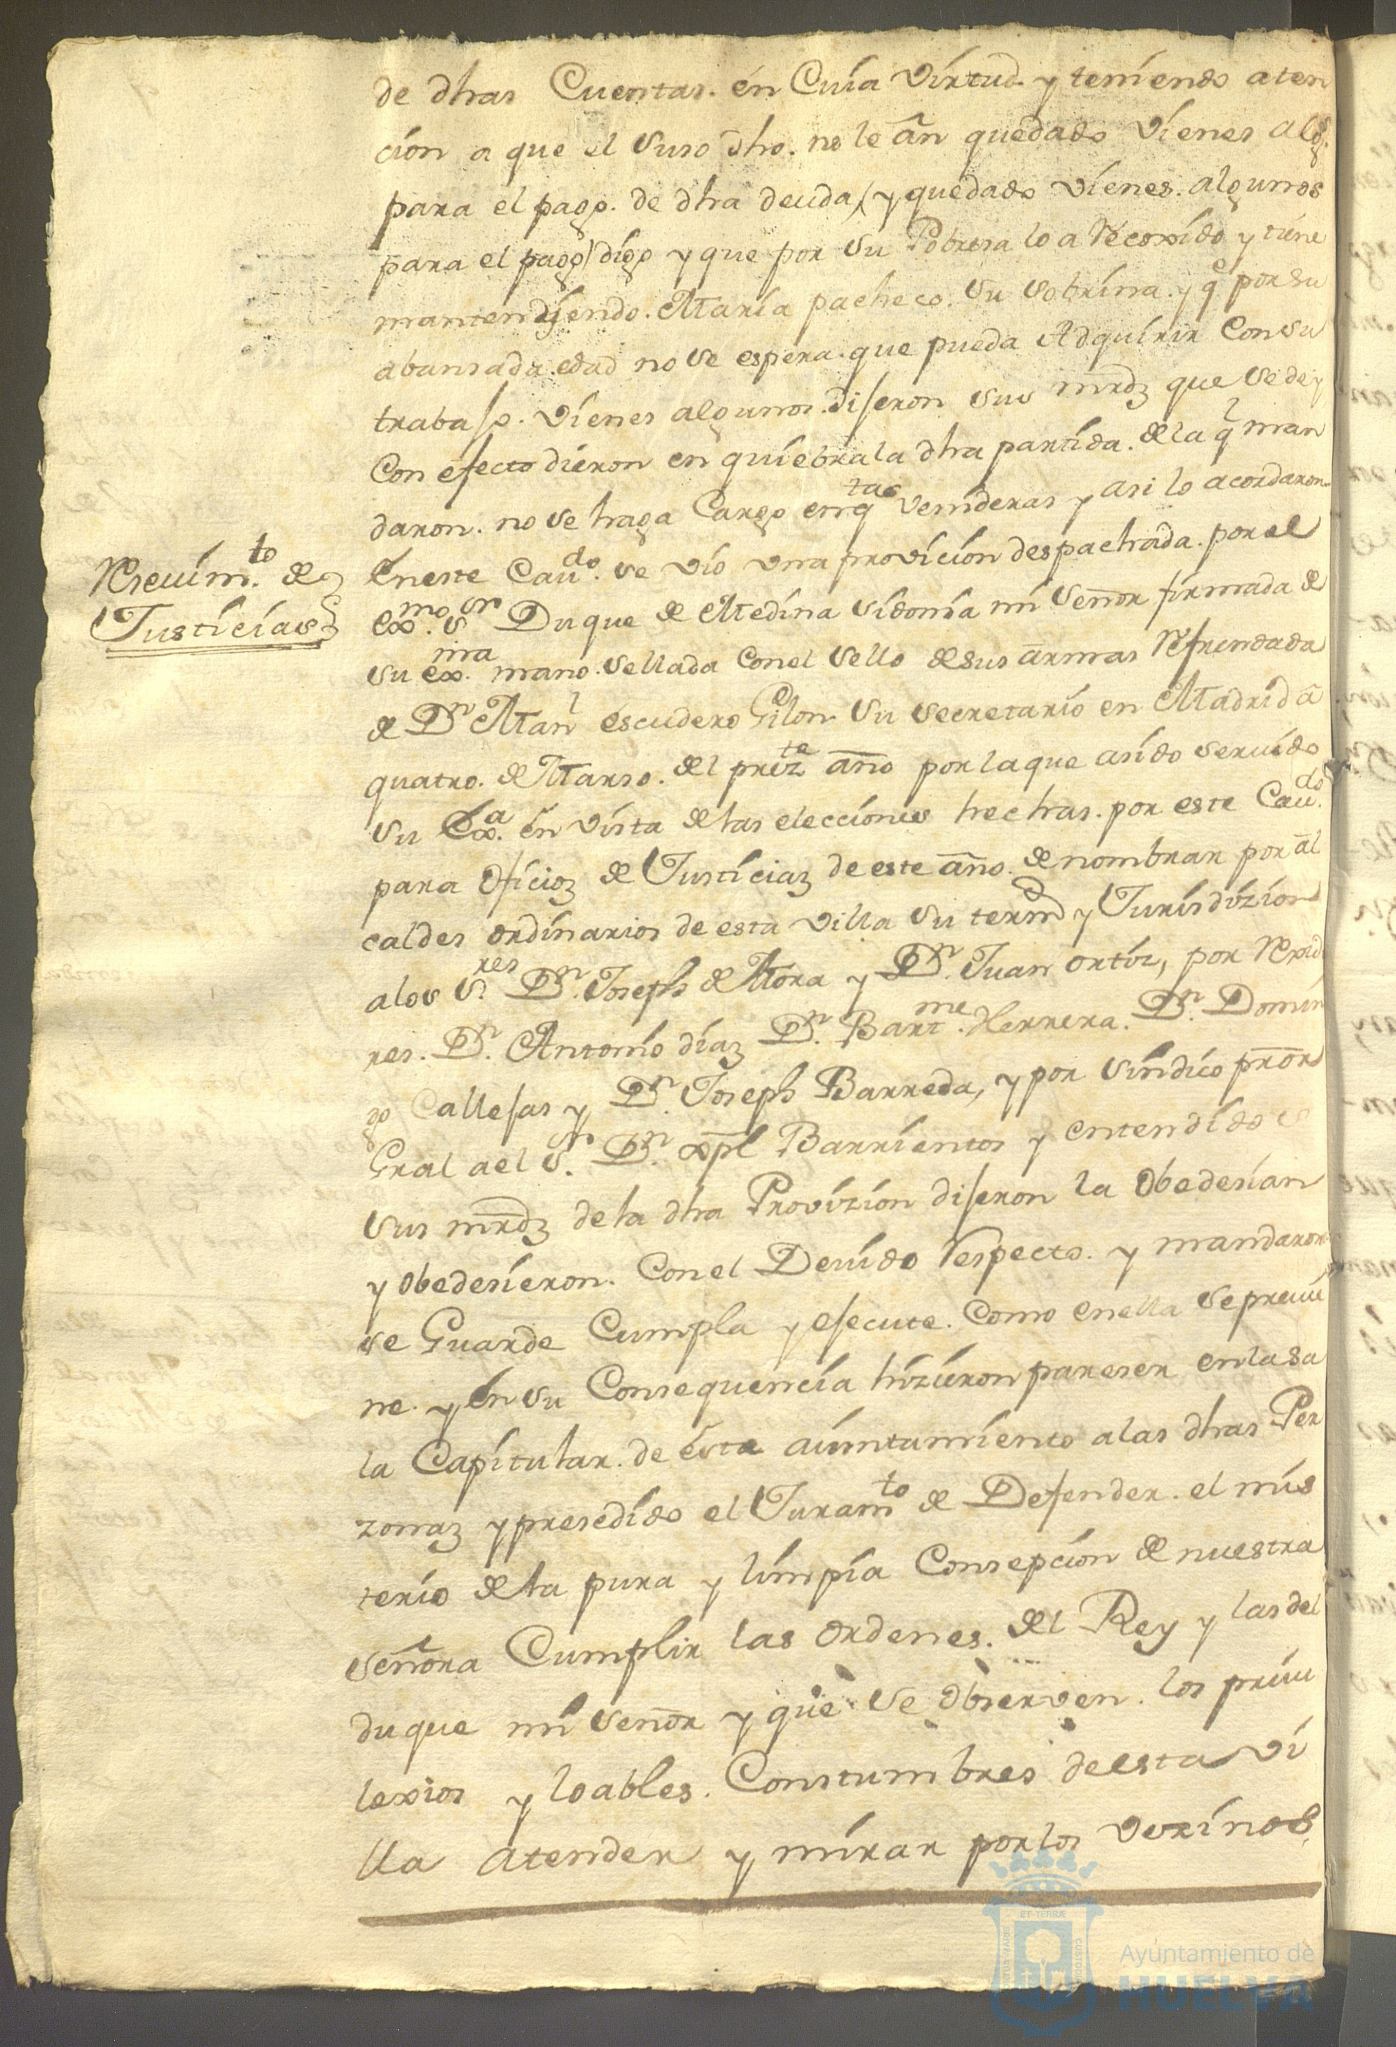 de dhas Cuentas. en Cuia virtud. y teniendo aten
cion a que el Suso dho. no le an quedado vienes algs.
para el pago. de dha deuda, (y quedado vienes. algunos
para el pago) digo y que por su Pobresa lo a Recoxido y tiene
manteniendo. Maria pacheco. su sobrina. y q̃ por su
abansada. edad no se espera. que pueda Adquirir Con su
trabaso. vienes algunos. diseron sus mrdz que se de y
Con efecto dieron en quiebra la dha partida. de la ql man
daron. no se haga Cargo en qtas venideras y asi lo acordaron
Reseuimto de
Justicias
En este Caudo. se vio una provicion despachada. por el
exmo. sr Duque de Medina sidonia mi señor firmada de
su exma. mano. sellada Con el sello de sus armas Refrendada
de Dn Manl escudero Gilon su secretario en Madrid a
quatro. de Marso. del prezte año por la que asido seruido
su Exa. en vista de las elecciones hechas. por este Caudo.
para oficioz de Justiciaz de este año. de nombrar por al
caldes ordinarios de esta villa su termo y Jurisdizion
a los Sres. Dn. Joseph de Mora y Dn. Juan ortiz, por Rexid
res. Dn. Antonio diaz Dn. Bartme. Herrera. Dn. Domin
go Callesas y Dn. Joseph Barreda, y por sindico pror
Gral a el Sr. Dn. xpl Barrientos y entendido
sus mrdz de la dha Provizion diseron la obedesian
y obedesieron. Con el Deuido respecto. y mandaron
se Guarde Cumpla y esecute. Como en ella se preuie
ne. y en su Consequencia hizieron pareser en la sa
la Capitular. de este aiuntamiento a las dhas Per
zonaz y presedido el Juramto de Defender. el mis
terio de la pura y limpia Consepcion de nuestra
señora Cumplir las ordenes. del Rey y las del
duque mi señor y que se observen. los priui
lexios y loables. Constumbres de esta vi
lla atender y mirar por los vezinos
Ayuntamiento de
HUELVA